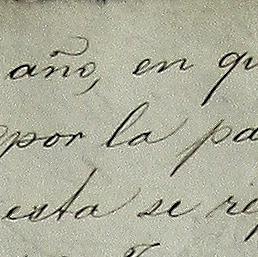 año, en qu
por la pa
esta se rep